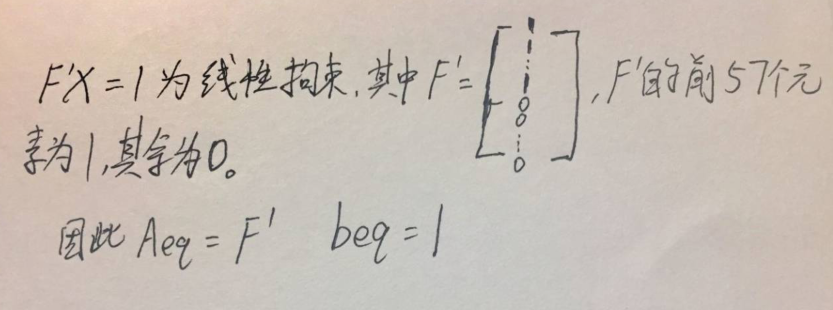 F'X=1为线性拘束,其中F'=[1 1 ⋮ 1 0 0 ⋮ 0],F'的前57个元
素为1,其余为0。
因此 Aeq = F' beq = 1